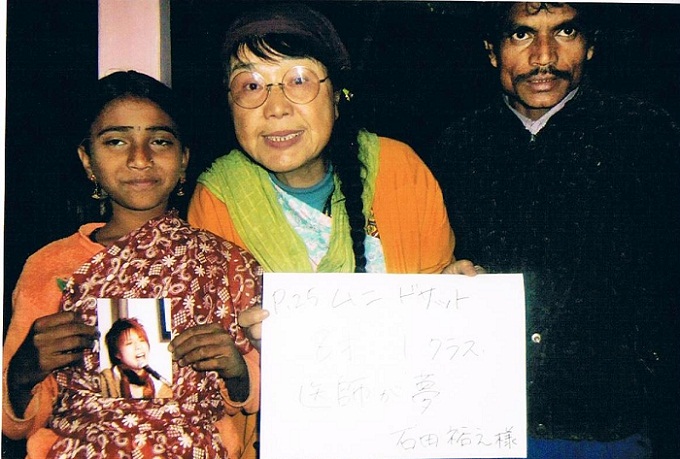 P.25 ムニ ドゥット
8才 1 クラス.
医師が夢
石田裕之様